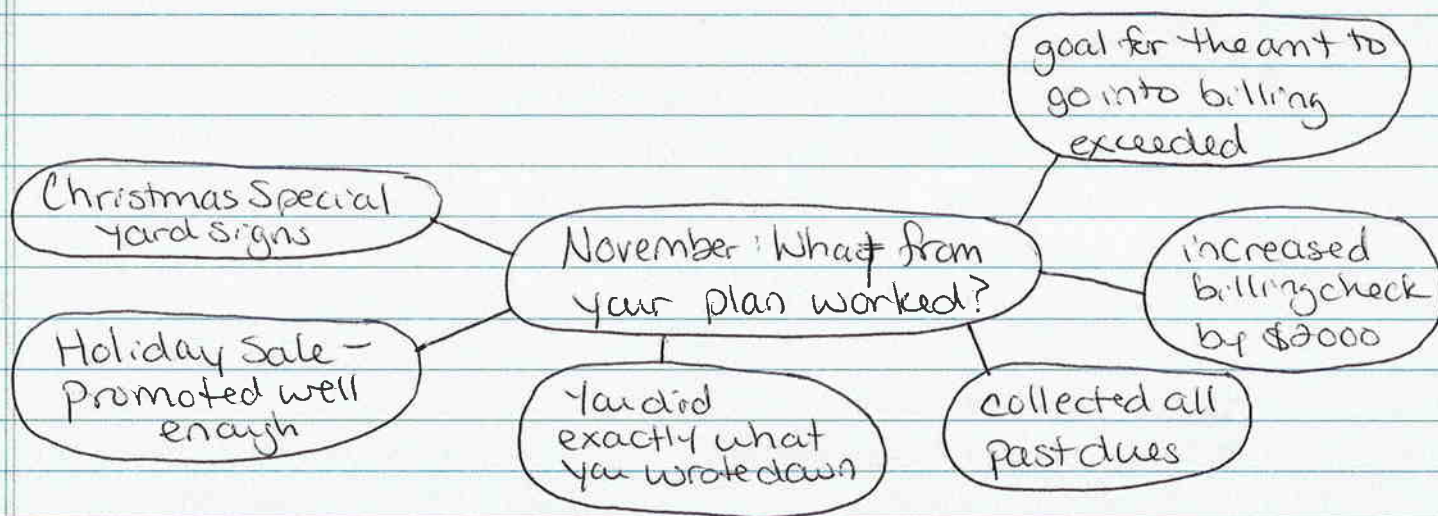 goal for the amt to
go into billing
exceeded
Christmas Special
yard signs
November: What from
your plan worked?
increased
billing check
by $2000
Holiday Sale -
promoted well
enough
You did
exactly what
you wrote down
collected all
past dues